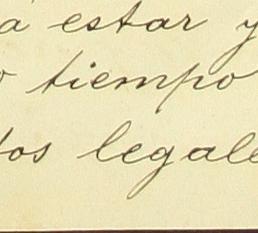 a estar y
o tiempo
tos legale